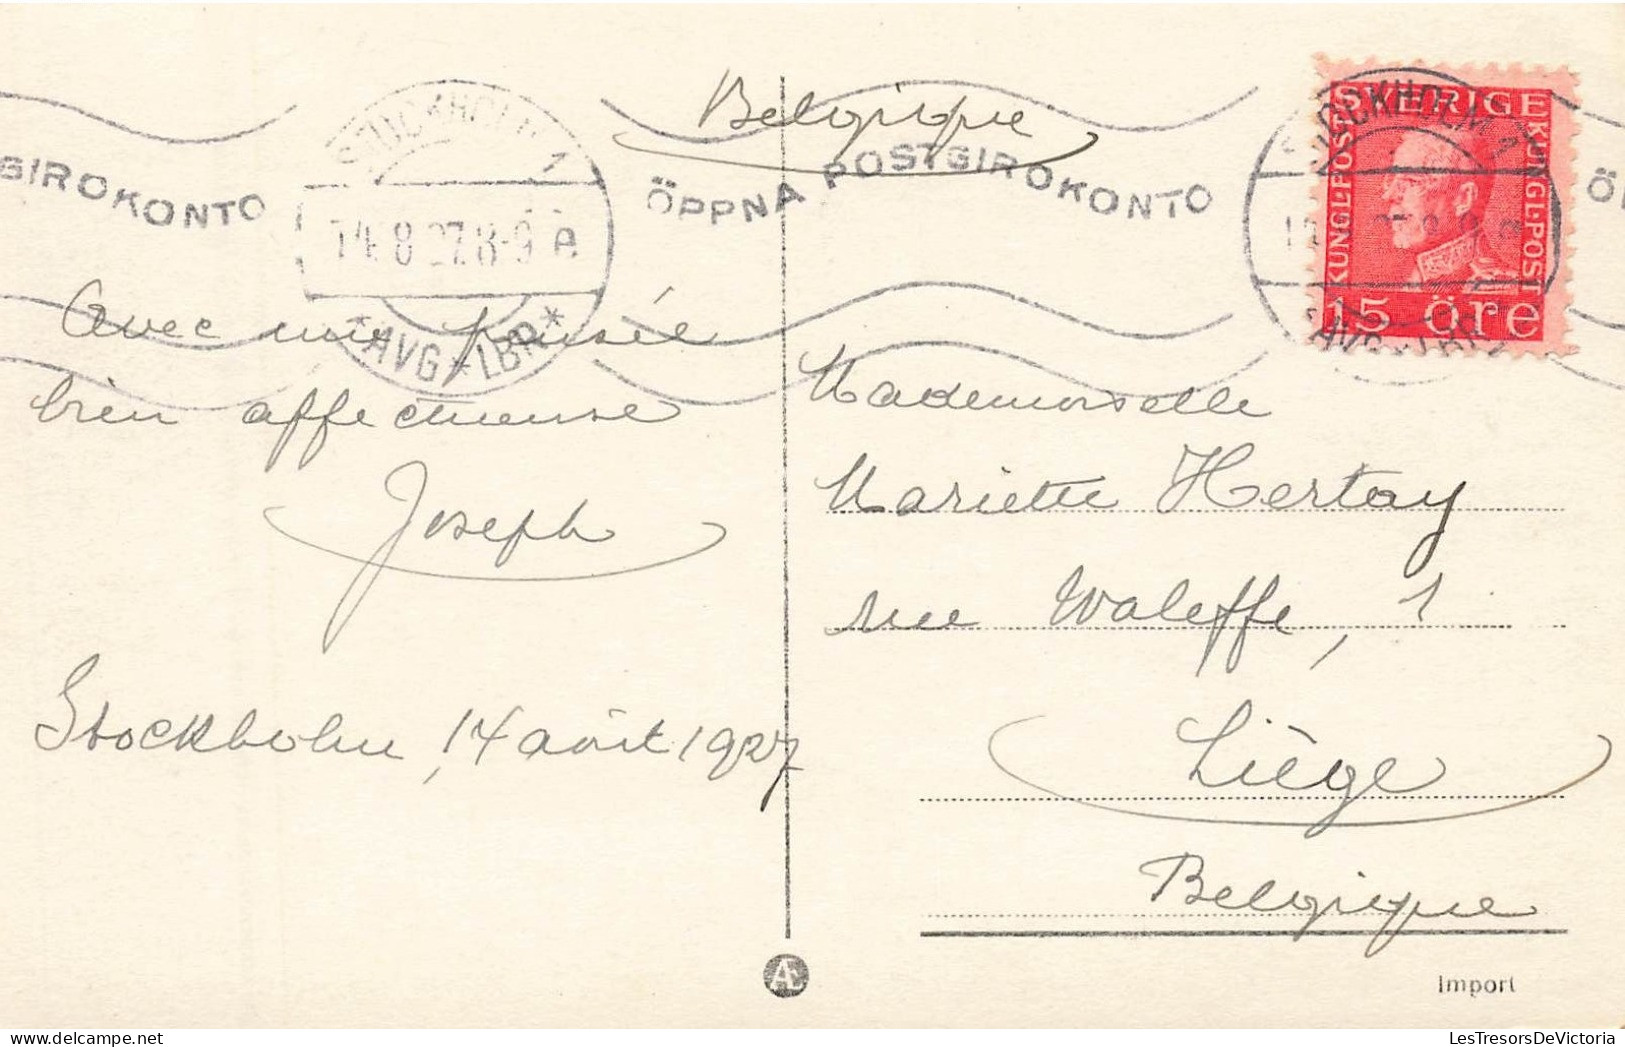 Belgique
STOCKHOLM 1
14.8.27.8-9 e
*AVG*LBR*
GIROKONTO
ÖPPNA POSTGIROKONTO
STOCKHOLM 1
AVG
SVERIGE
KUNGL·POST
KUNGL·POST
15 öre
Avec une pensée
bien affectueuse
Joseph
Stockholm, 14 août 1927
Mademoiselle
Mariette Hertay
rue Waleffe, 1
Liège
Belgique
Æ
Import
LesTresorsDeVictoria